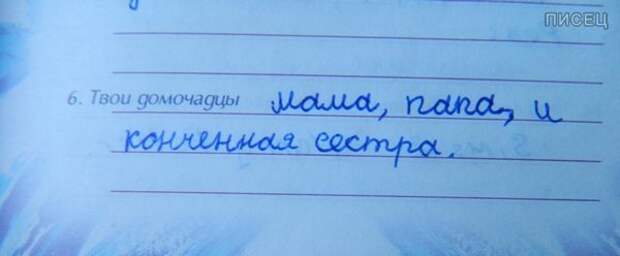 ПИСЕЦ
6. Твои домочадцы мама, папа, и
конченная сестра.